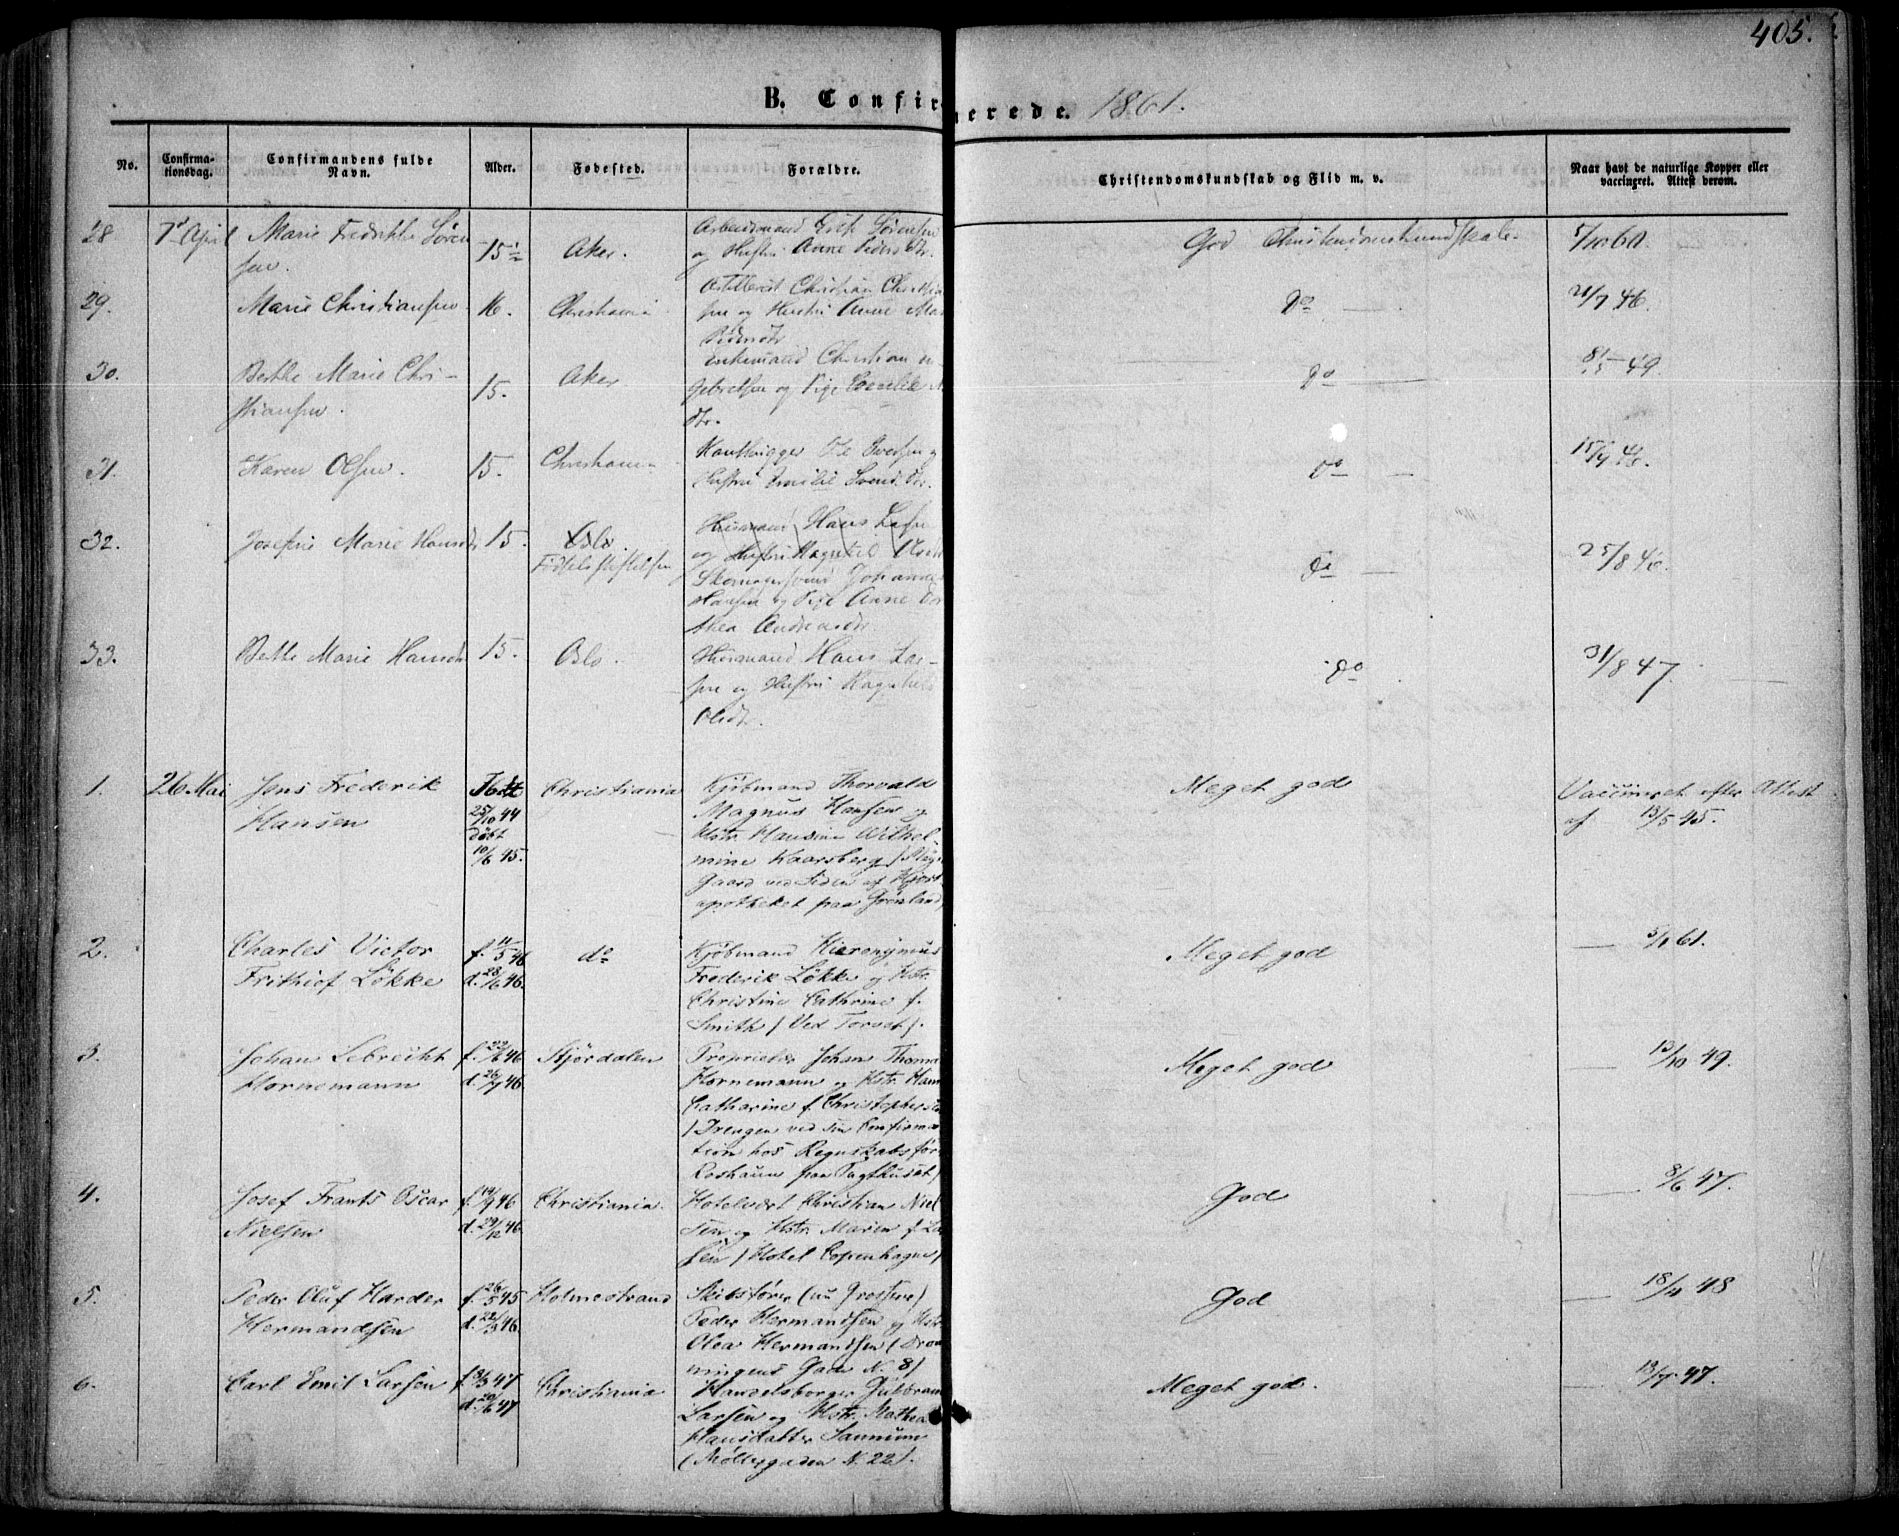 405.
B. Confir merede. 1861.
No.
Confirma-
tionsdag.
Confirmandens fulde
Navn.
Alder.
Fødested.
Forældre.
Christendomskundskab og Flid m. v.
Naar havt de naturlige Kopper eller
vaccineret. Attest derom.
28 7 April Marie Fredrikke Søren
sen. 15½ Aker.
Arbeidsmand Erik Sørensen
og Hustri Anne Pedersdtr.
God Christendomskundskab.
5/10 60.
29. Marie Christiansen 16. Christiania
Artillerist Christian Christian
sen og Hustri Anne Mar
Pedersdtr
do 21/7 46.
30. Berthe Marie Chri-
stiansen. 15. Aker
Enkemand Christian
Gebretsen og Pige
dtr.
do 49.
31. Karen Olsen. 15. Christiania
Ole Iversen og
Hustri Svendsdtr.
do
32. Josefine Marie Hansdr 15. Oslo
Fødselsstiftelsen
Huusmand Hans Larsen
og Hustri Ragnhild
Skomagersvend Johannes
Hansen og Pige Anne Dor
thea Andreasdtr.
do 25/8 46.
33. Berthe Marie Hansdtr 15. Oslo.
Huusmand Hans Lar-
sen og Hustri Ragnhild
Olsdtr.
do 31/8 47.
1. 26 Mai Jens Frederik
Hansen
Født
25/10 44
døbt
10/6 45.
Christiania
Kjøbmand Thorvald
Magnus Hansen og
Hstr. Hansine Wilhel-
mine Kaarsberg
Gaard ved Siden af Hjort
apotheket paa Grønland)
Meget god
Vaccineret efter Attest
af 13/5 45.
2. Charles Victor
Frithiof Løkke
f. 11/5 46
d. 28/6 46.
do
Kjøbmand Hieronymus
Frederik Løkke og Hstr.
Christine Cathrine f.
Smith (Ved Torvet).
Meget god
— 61.
3. Johan Lebrecht
Hornemann
f. 46
d. 46
Stjørdalen
Proprietær Johan Thoma
Hornemann og Hstr. Hann
Catharine f. Christophersen
(Drengen ved sin Confirma
tion hos Regnskabsfør
Roshauw paa Tugthuset)
Meget god
13/10 49.
4. Josef Frants Oscar
Nielsen
f. 46
d. 29/12 46
Christiania.
Hotelvært Christian Niel
sen og Hstr. Maren f. La
sen (Hotel Copenhagen)
God
— 8/6 47.
5. Peder Oluf Harder
Hermandsen
f. 26/5 45
d. 22/3 46.
Holmestrand
Skibsfører (nu Grosserer)
Peder Hermandsen og Hstr.
Olea Hermandsen (Dron
ningens Gade N. 8)
God
— 18/4 48
6. Carl Emil Larsen
f. 47
d. 20/6 47
Christiania
Handelsborger Gulbran
Larsen og Hstr. Mathea
Hansdatter Sannum
(Møllergaden N. 22).
Meget god.
— 13/7 47.